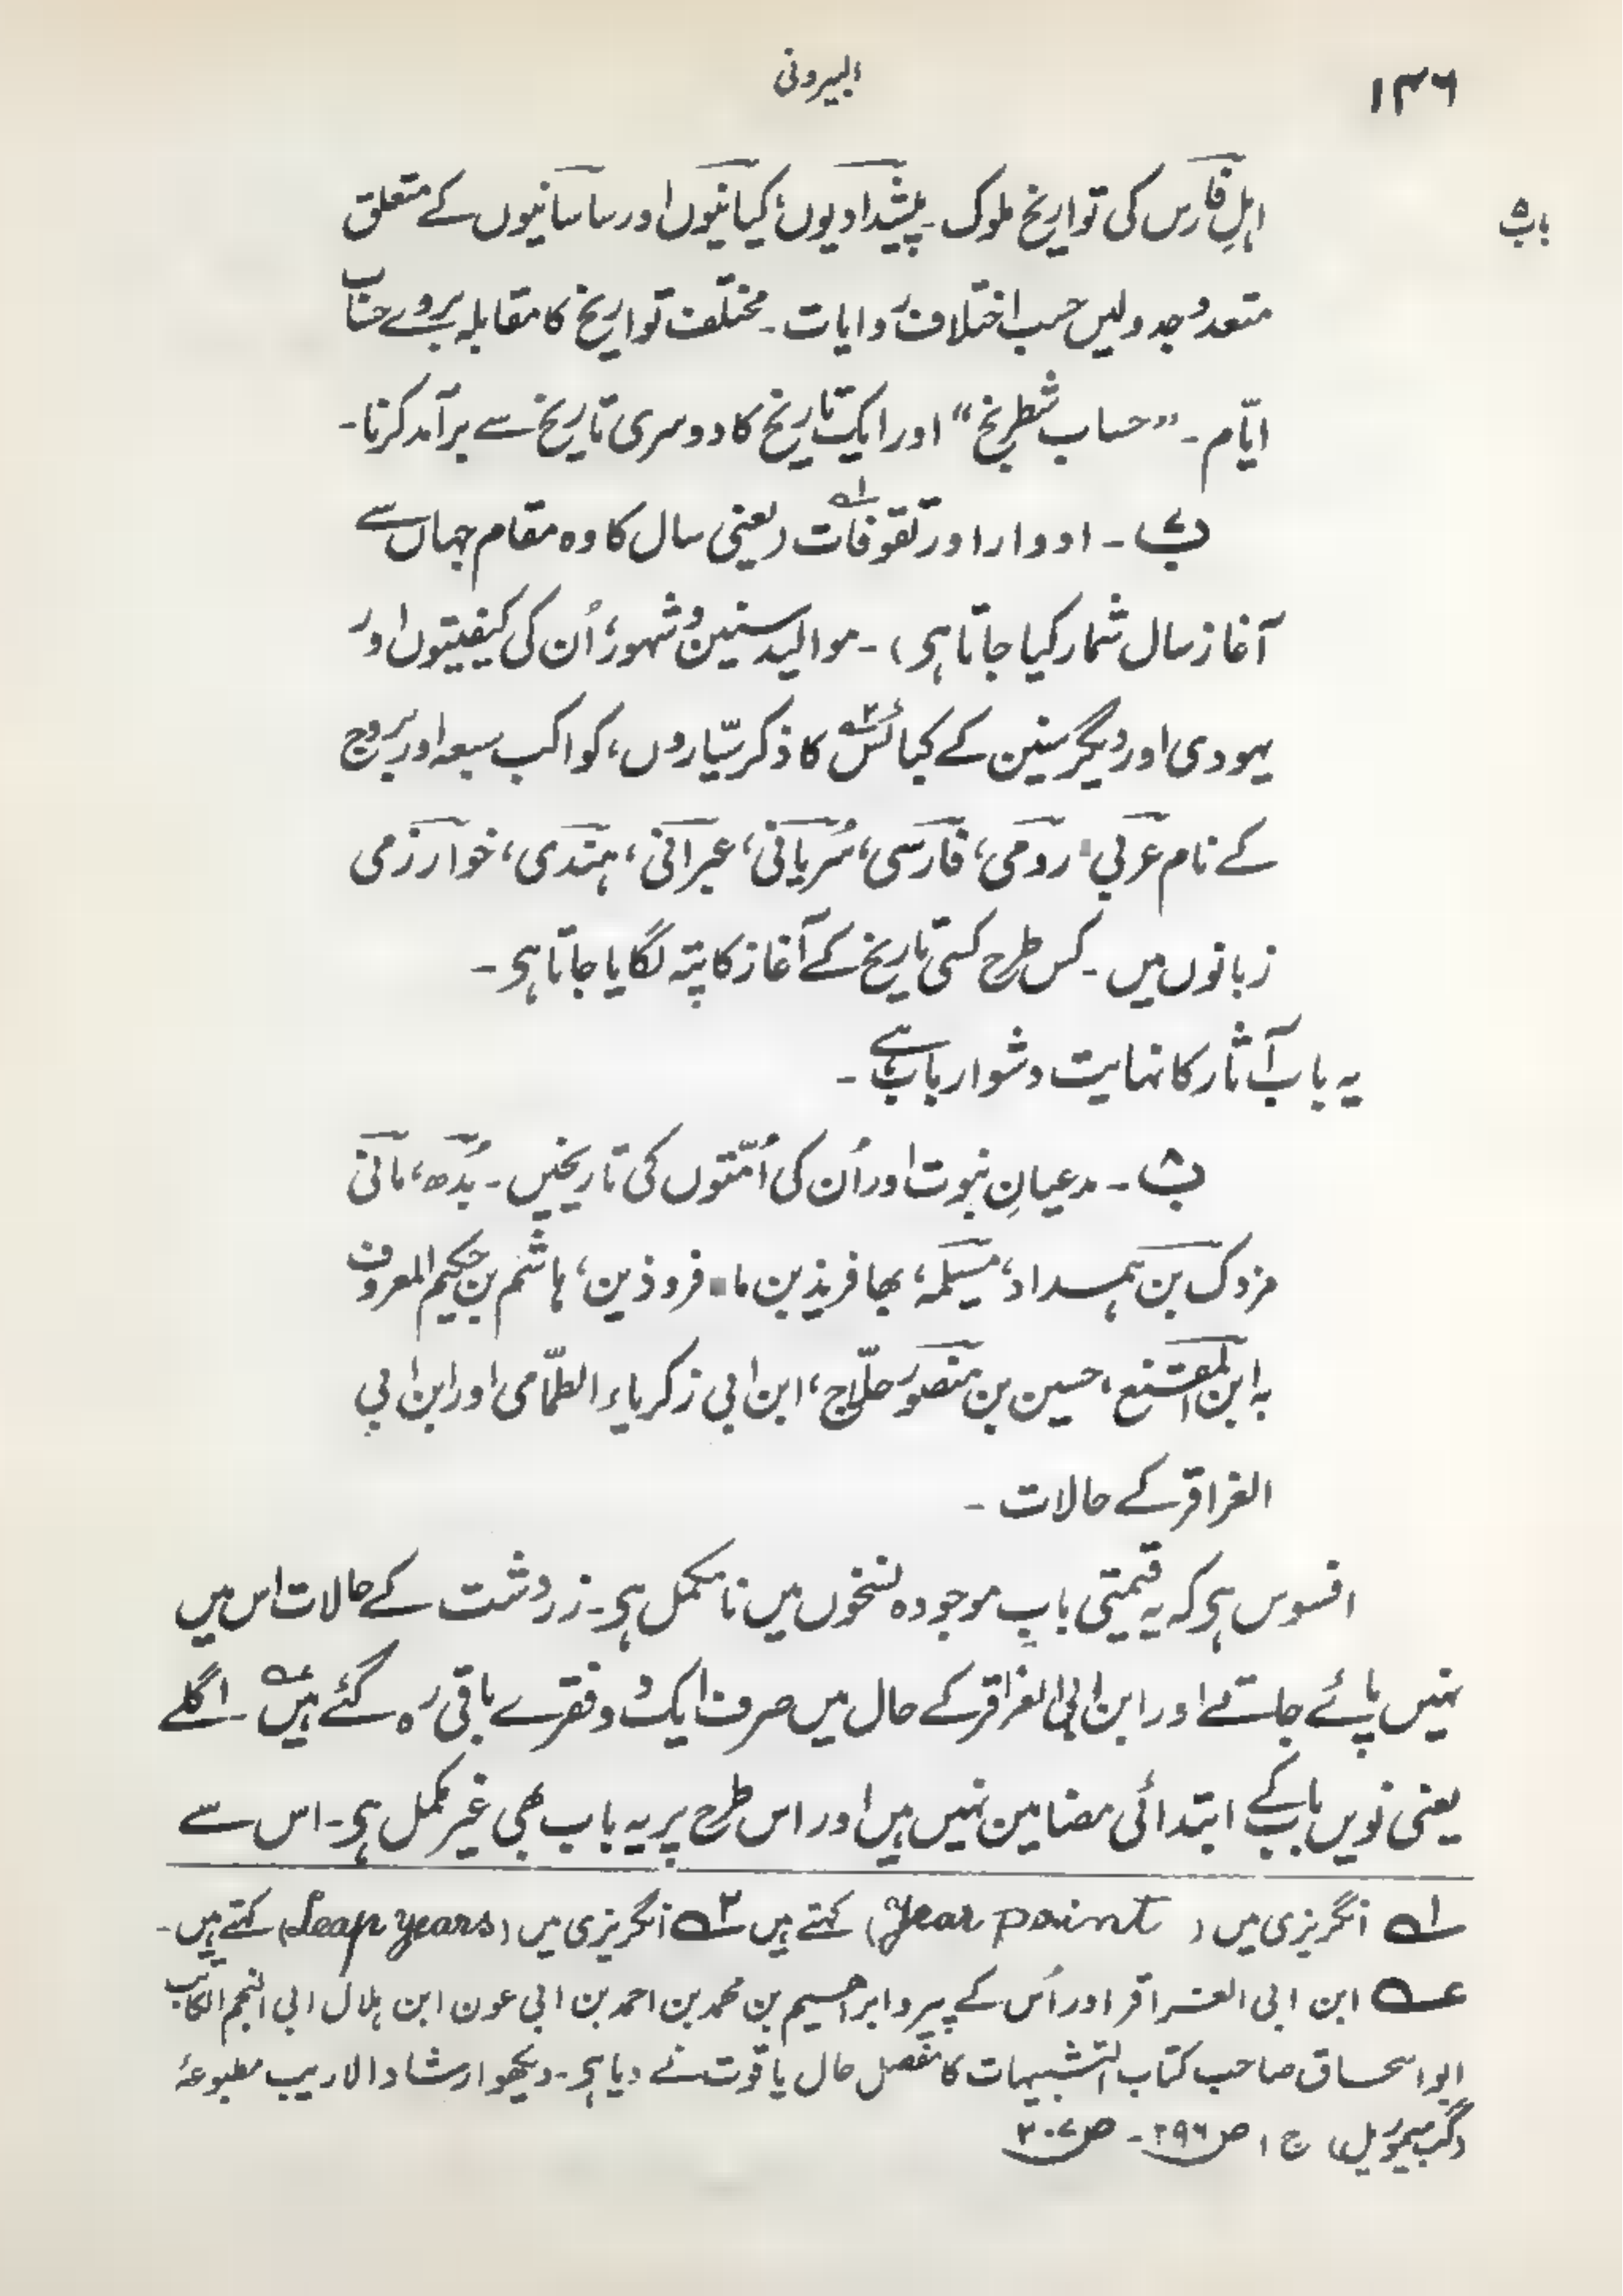 ۱۳۶
البیرونی
باب ۵
اہلِ فارس کی تواریخ ملوک۔ پیشدادیوں، کیانیوں اور ساسانیوں کے متعلق
متعدد جدولیں حسب اختلاف روایات۔ مختلف تواریخ کا مقابلہ بروے حساب
ایّام۔ ”حساب شطرنج“ اور ایک تاریخ کا دوسری تاریخ سے برآمد کرنا۔
ب۷۔ ادوار اور تقوفات ۱ (یعنی سال کا وہ مقام جہاں سے
آغاز سال شمار کیا جاتا ہی)۔ موالید سنین و شہور، اُن کی کیفیتوں اور
یہودی اور دیگر سنین کے کبائس ۲ کا ذکر سیّاروں، کواکب سبعہ اور بروج
کے نام عربی، رومی، فارسی، سُریانی، عبرانی، ہندی، خوارزمی
زبانوں میں۔ کس طرح کسی تاریخ کے آغاز کا پتہ لگایا جاتا ہی۔
یہ باب آثار کا نہایت دشوار باب ہے۔
ب۸۔ مدعیانِ نبوت اور اُن کی اُمّتوں کی تاریخیں۔ بُدھ، مانی
مزدک بن ہمداد، مسیلمہ، بھافریذ بن ماہ فروذین، ہاشم بن حکیم المعروف
بہ ابن المقنع، حسین بن منصور حلّاج، ابن ابی زکریاء الطمّامی اور ابن ابی
الغراقر کے حالات۔
افسوس ہی کہ یہ قیمتی باب موجودہ نسخوں میں نامکمل ہی۔ زردشت کے حالات اس میں
نہیں پائے جاتے اور ابن ابی الغراقر کے حال میں صرف ایک دو فقرے باقی رہ گئے ہیں عہ۔ اگلے
یعنی نویں باب کے ابتدائی مضامین نہیں ہیں اور اس طرح پر یہ باب بھی غیر مکمل ہی۔ اس سے
۱؎ انگریزی میں (Year point) کہتے ہیں ۲؎ انگریزی میں (Leap years) کہتے ہیں۔
عہ ابن ابی الغراقر اور اُس کے پیرو ابراھیم بن محمد بن احمد بن ابی عون ابن ہلال ابی النجم الکاتب
ابو اسحاق صاحب کتاب التشبیہات کا مفصل حال یاقوت نے دیا ہی۔ دیکھو ارشاد الاریب مطبوعۂ
(گب میموریل) ج ۱ ص ۲۹۶۔ ص ۳۰۷